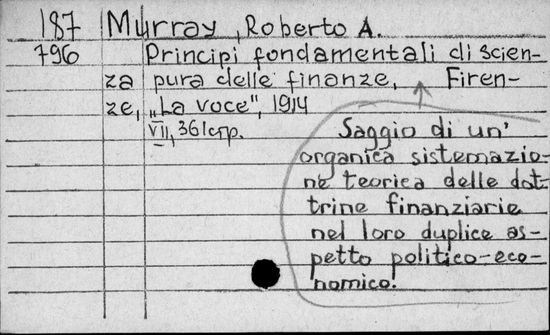 187 Murray, Roberto A.
796 Principi fondamentali di scien-
za pura delle finanze, Firen-
ze, „La voce", 1914
VII, 361 стр.
Saggio di un'
organica sistemazio-
ne teorica delle dot-
trine finanziarie
nel loro duplice as-
petto politico-eco-
nomico.